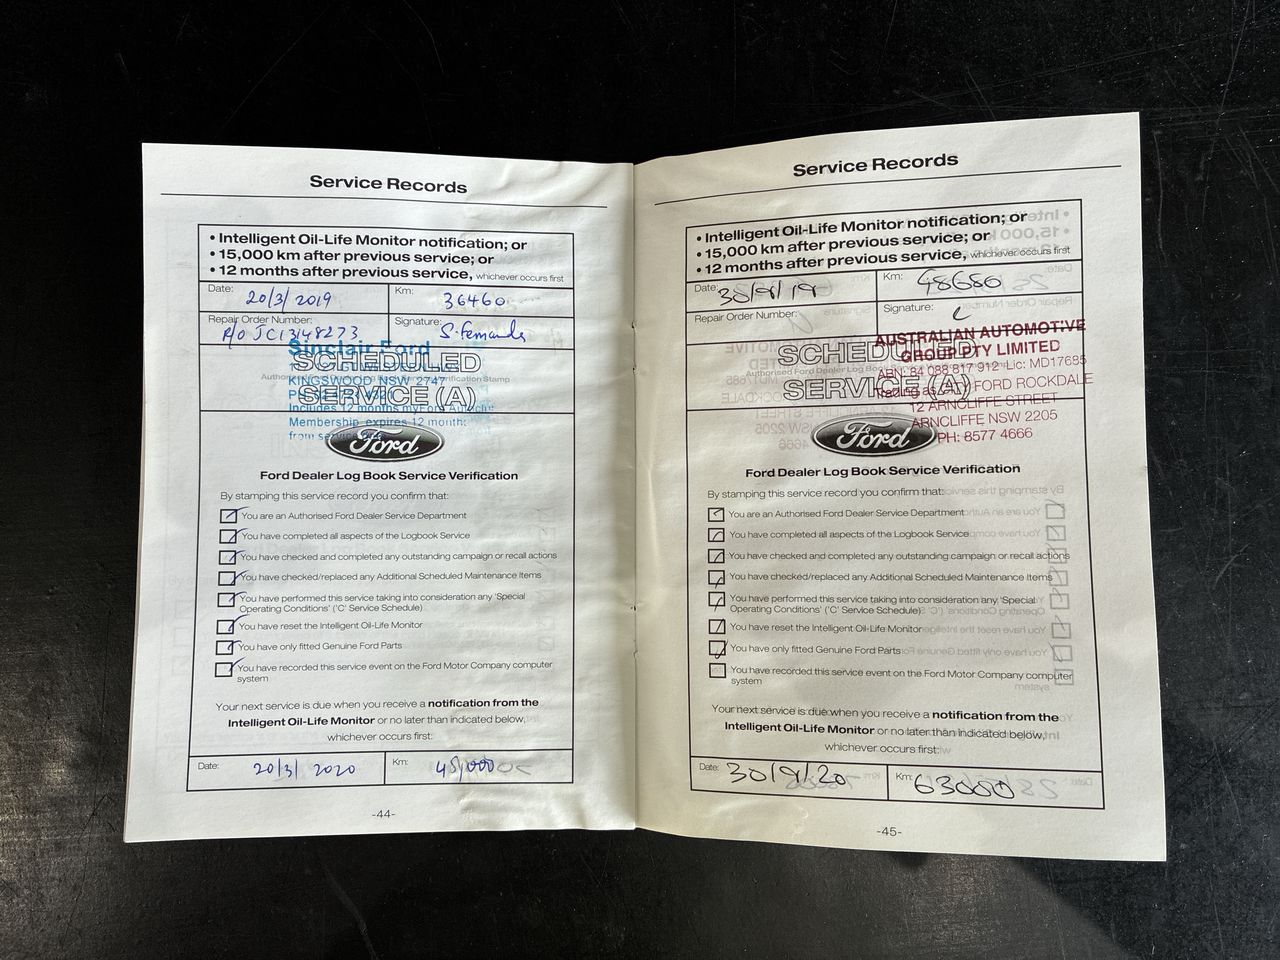 Service Records
• Intelligent Oil-Life Monitor notification; or
• 15,000 km after previous service; or
• 12 months after previous service, whichever occurs first
Date: 20/3/2019
Km: 36460
Repair Order Number: R/O JC13148273
Signature: S.Fernands
Sinclair Ford
SCHEDULED
Authorised Ford Dealer Service Verification Stamp
KINGSWOOD NSW 2747
SERVICE (A)
Includes 12 months myFord Autoclub
Membership expires 12 months
from service
Ford
Ford Dealer Log Book Service Verification
By stamping this service record you confirm that:
You are an Authorised Ford Dealer Service Department
You have completed all aspects of the Logbook Service
You have checked and completed any outstanding campaign or recall actions
You have checked/replaced any Additional Scheduled Maintenance Items
You have performed this service taking into consideration any 'Special
Operating Conditions' ('C' Service Schedule)
You have reset the Intelligent Oil-Life Monitor
You have only fitted Genuine Ford Parts
You have recorded this service event on the Ford Motor Company computer
system
Your next service is due when you receive a notification from the
Intelligent Oil-Life Monitor or no later than indicated below,
whichever occurs first:
Date: 20/3/ 2020
Km: 45,000
-44-
Service Records
• Intelligent Oil-Life Monitor notification; or
• 15,000 km after previous service; or
• 12 months after previous service, whichever occurs first
Date: 30/9/19
Km: 48680
Repair Order Number:
Signature:
AUSTRALIAN AUTOMOTIVE
GROUP PTY LIMITED
SCHEDULED
ABN: 84 088 817 912 Lic: MD17685
SERVICE (A)
Trading as FORD ROCKDALE
12 ARNCLIFFE STREET
ARNCLIFFE NSW 2205
PH: 8577 4666
Ford
Ford Dealer Log Book Service Verification
By stamping this service record you confirm that:
You are an Authorised Ford Dealer Service Department
You have completed all aspects of the Logbook Service
You have checked and completed any outstanding campaign or recall actions
You have checked/replaced any Additional Scheduled Maintenance Items
You have performed this service taking into consideration any 'Special
Operating Conditions' ('C' Service Schedule)
You have reset the Intelligent Oil-Life Monitor
You have only fitted Genuine Ford Parts
You have recorded this service event on the Ford Motor Company computer
system
Your next service is due when you receive a notification from the
Intelligent Oil-Life Monitor or no later than indicated below,
whichever occurs first:
Date: 30/9/20
Km: 63000
-45-